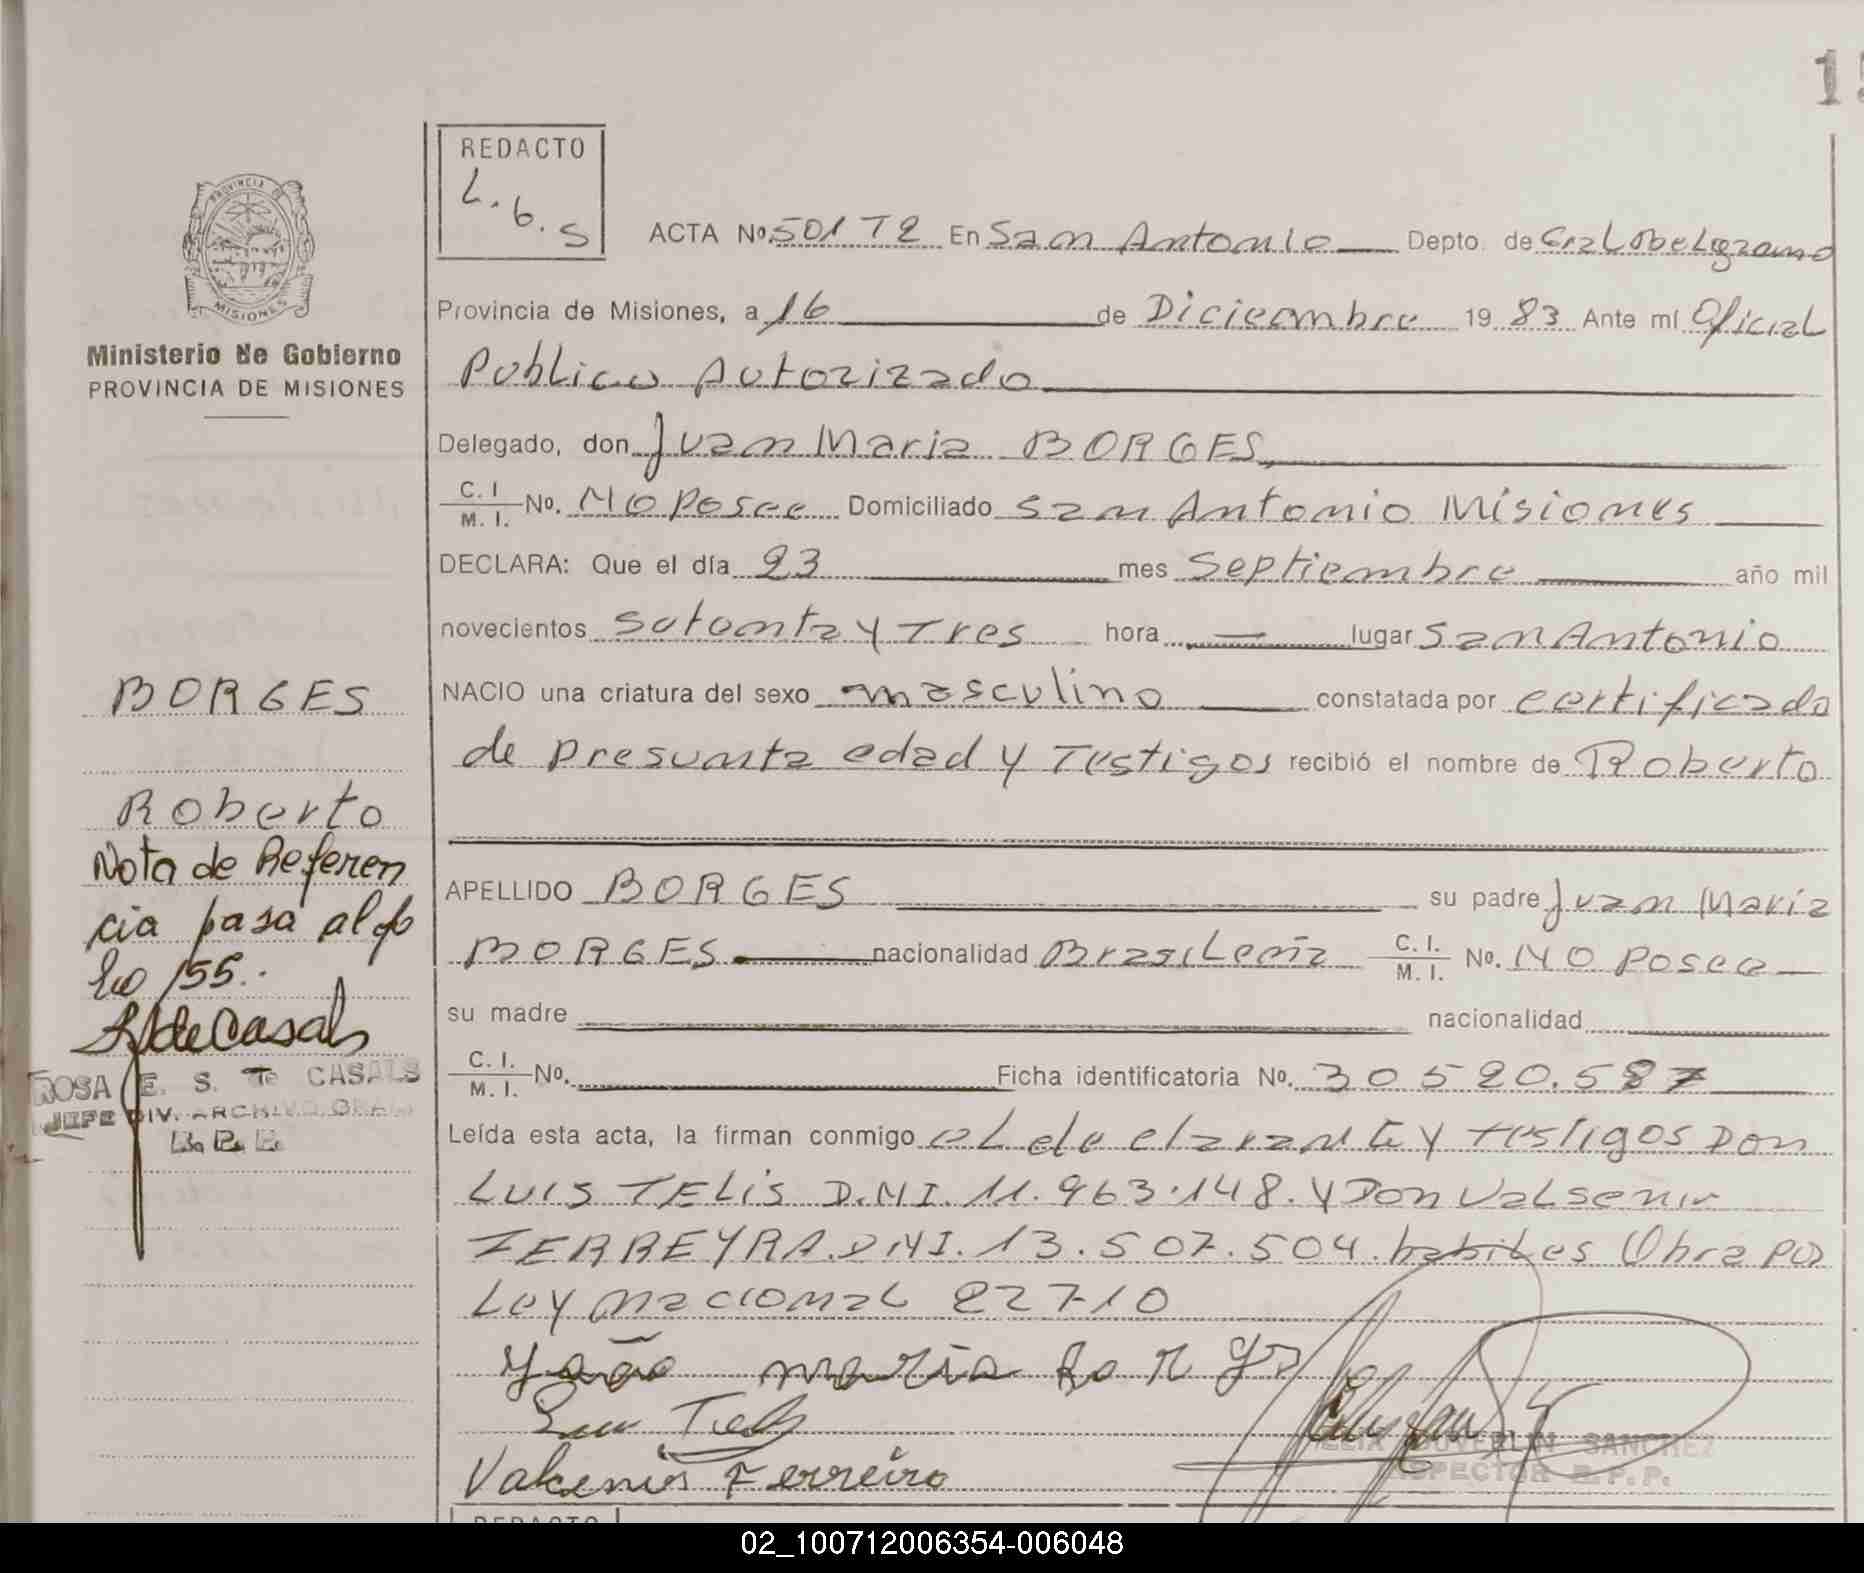 1
REDACTO
L.G.S
ACTA No. 501 T2 En San Antonio Depto. de Gral Belgrano
PROVINCIA DE
MISIONES
Ministerio de Gobierno
PROVINCIA DE MISIONES
Provincia de Misiones, a 16 de Diciembre 19 83 Ante mí Oficial
Publico Autorizado
Delegado, don Juan Maria BORGES,
C. I. / M. I. No. No posee Domiciliado San Antonio Misiones
DECLARA: Que el día 23 mes Septiembre año mil
novecientos setenta y Tres hora — lugar San Antonio
NACIO una criatura del sexo masculino constatada por certificado
de presunta edad y Testigos recibió el nombre de Roberto
APELLIDO BORGES su padre Juan María
BORGES nacionalidad Brasileña C. I. / M. I. No. No posee
su madre nacionalidad
C. I. / M. I. No. Ficha identificatoria No. 30520.587
Leída esta acta, la firman conmigo el declarante y testigos Don
LUIS TELIS D.N.I. 11.963.148. y Don Valsenir
FERREYRA. DNI. 13.507.504. habiles Obra por
Ley nacional 22710
João maria Borges
Luis Telis
Valsenir Ferreira
FELIX DUVERLIN SANCHEZ
INSPECTOR R.P.P.
BORGES
Roberto
Nota de Referen
cia pasa al fo
lio 155.
R de Casals
ROSA E. S. de CASALS
JEFE DIV. ARCHIVO GRAL
R.P.P.
REDACTO
02_100712006354-006048